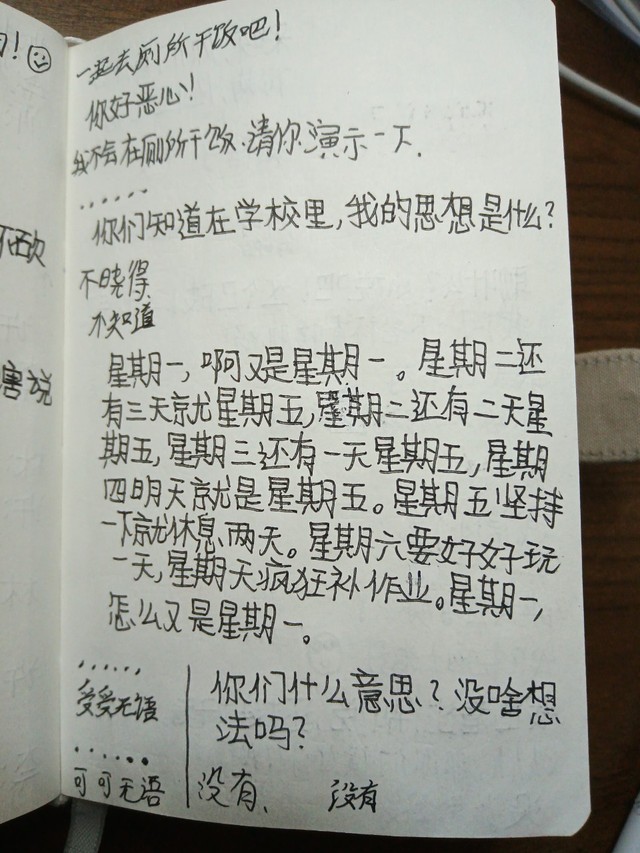 一起去厕所干饭吧！
你好恶心！
我不会在厕所干饭，请你演示一下.
......
你们知道在学校里,我的思想是什么?
不晓得
不知道
星期一,啊又是星期一。星期二还
有三天就星期五,星期二还有二天星
期五,星期三还有一天星期五,星期
四明天就是星期五。星期五坚持
一下就休息两天。星期六要好好玩
一天,星期天疯狂补作业。星期一,
怎么又是星期一。
......
受受无语
......
可可无语
你们什么意思?没啥想
法吗?
没有、 没有
唐说